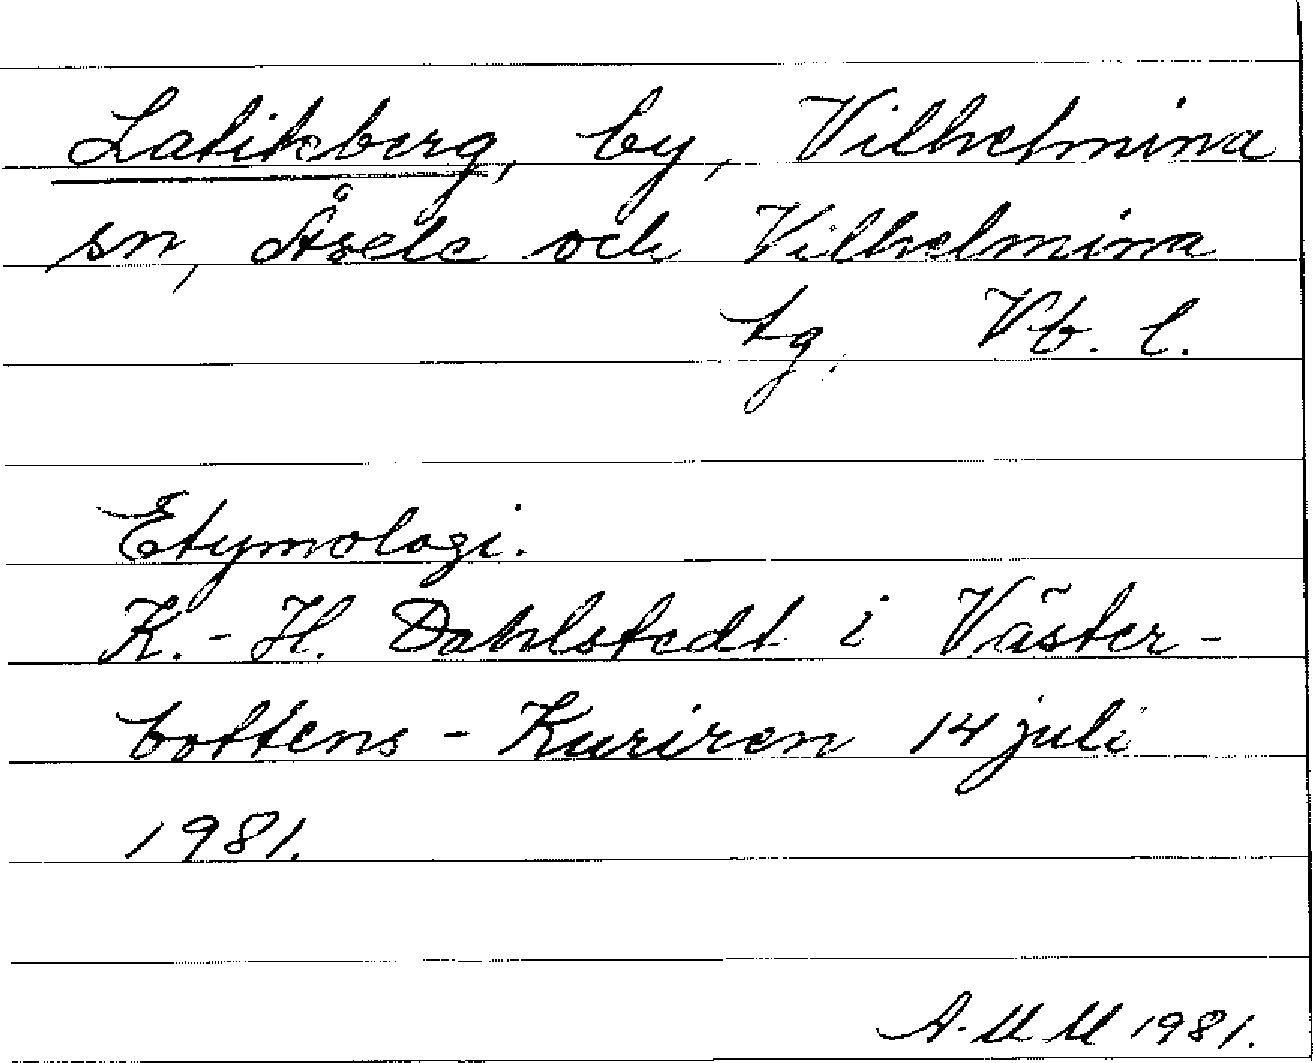 Latikberg, by, Vilhelmina
sn, Åsele och Vilhelmina
tg, Vb. l.
Etymologi.
K.-H. Dahlstedt i Väster-
bottens-Kuriren 14 juli
1981.
A-M M 1981.